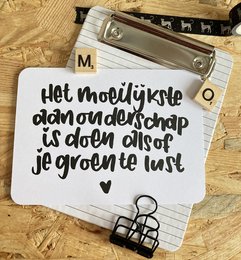 M,
O
Het moeilijkste
aan ouderschap
is doen alsof
je groente lust